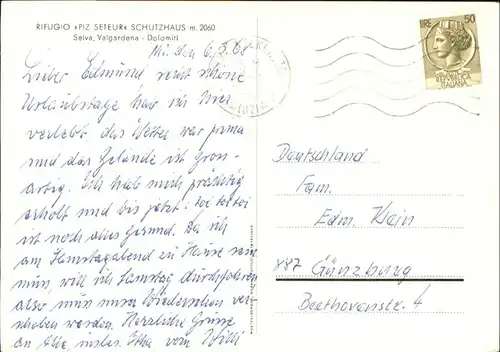 RIFUGIO »PIZ SETEUR« SCHUTZHAUS m. 2060
Selva, Valgardena - Dolomiti
LIRE 50
REPUBBLICA
ITALIANA
6.3.68
Lieber Edmund recht schöne
Urlaubstage hab ich hier
verlebt das Wetter war prima
und das Gelände ist Gross-
artig. Ich hab mich prächtig
erholt und bis jetzt: toi toi toi
ist noch alles gesund. Da ich
am Samstagabend zu Hause sein
muss, will ich Samstag durchfahren
also muss unser Wiedersehen ver-
schoben werden. Herzliche Grüsse
an Alle, insbes. vom Willi
Deutschland
Fam.
Edm. Klein
887 Günzburg
Beethovenstr. 4